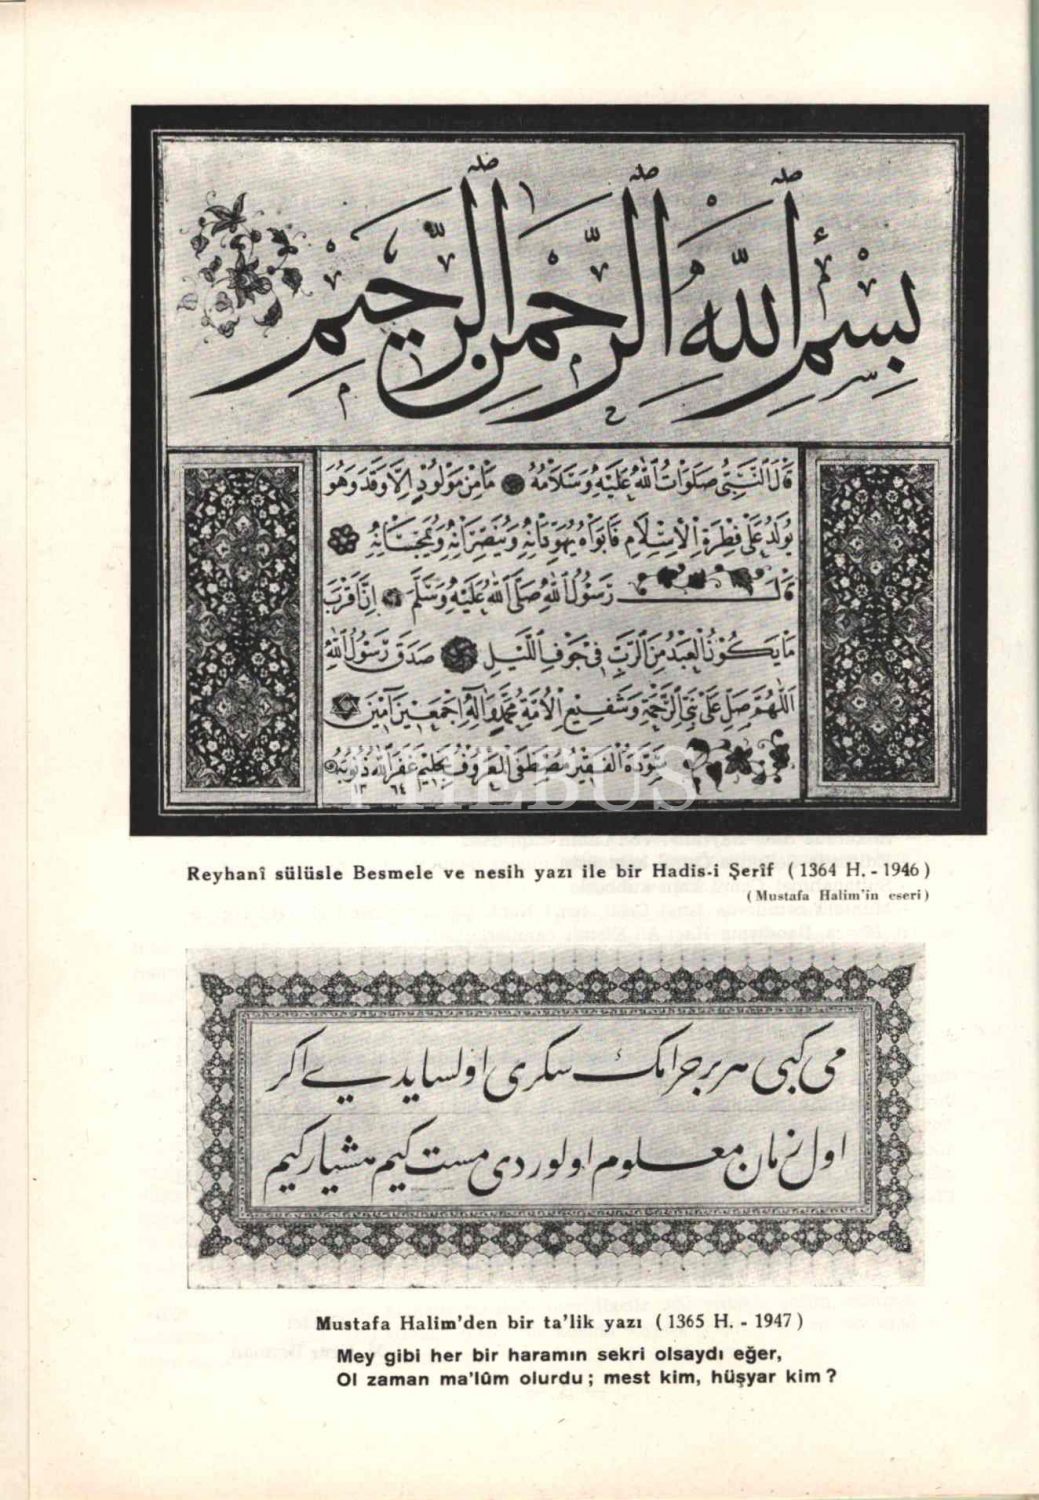 بِسْمِ اللهِ الرَّحْمٰنِ الرَّحِيمِ
قَالَ النَّبِيُّ صَلَوَاتُ اللهِ عَلَيْهِ وَسَلَامُهُ مَا مِنْ مَوْلُودٍ اِلَّا وَقَدْ وَهُوَ
يُولَدُ عَلَى فِطْرَةِ الْاِسْلَامِ فَاَبَوَاهُ يُهَوِّدَانِهِ وَيُنَصِّرَانِهِ وَيُمَجِّسَانِهِ
قَالَ رَسُولُ اللهِ صَلَّى اللهُ عَلَيْهِ وَسَلَّمَ اِنَّ اَقْرَبَ
مَا يَكُونُ الْعَبْدُ مِنَ الرَّبِّ فِي جَوْفِ اللَّيْلِ صَدَقَ رَسُولُ اللهِ
اَللّٰهُمَّ صَلِّ عَلَى نَبِيِّ الرَّحْمَةِ وَشَفِيعِ الْاُمَّةِ مُحَمَّدٍ وَاٰلِهِ اَجْمَعِينَ اٰمِينَ
سَوَّدَهُ الْفَقِيرُ مُصْطَفَى الْمَعْرُوفُ بِحَلِيمْ غَفَرَ اللهُ ذُنُوبَهُ
١٣ ٦٤
PHEBUS
Reyhanî sülüsle Besmele ve nesih yazı ile bir Hadis-i Şerîf (1364 H. - 1946)
(Mustafa Halim'in eseri)
می کبی هر بر حرامك سکری اولسایدی اکر
اول زمان معلوم اولوردی مست کیم هشیار کیم
Mustafa Halim'den bir ta'lik yazı (1365 H. - 1947)
Mey gibi her bir haramın sekri olsaydı eğer,
Ol zaman ma'lûm olurdu; mest kim, hüşyar kim?